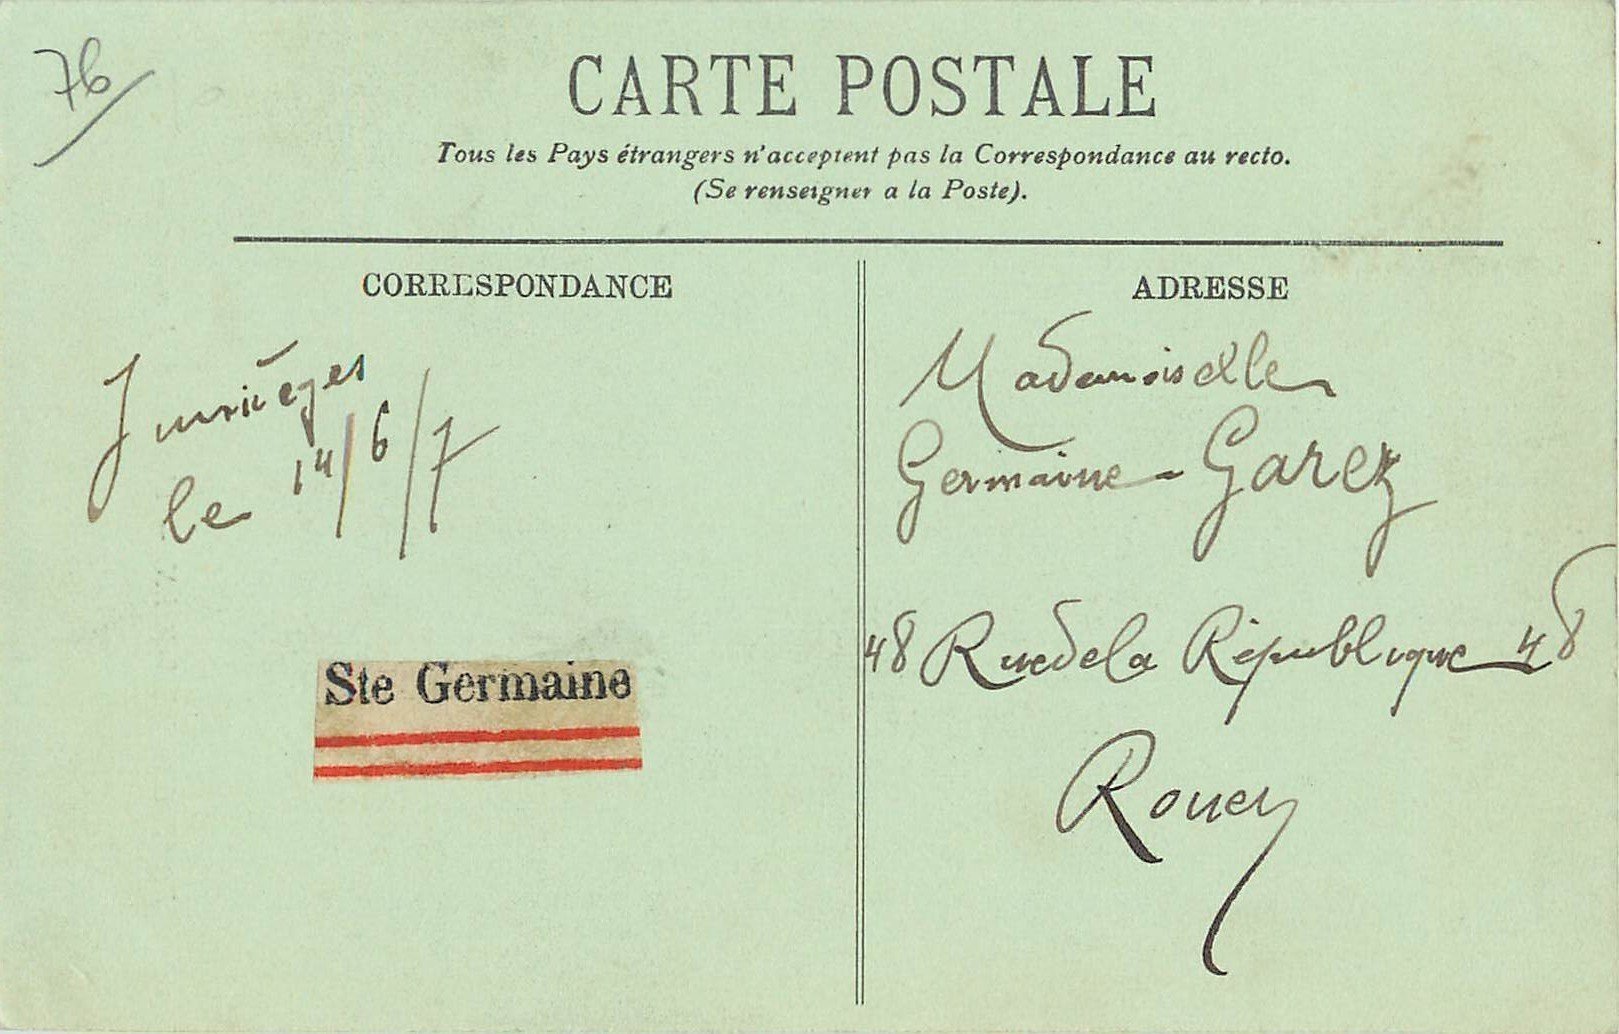 76
CARTE POSTALE
Tous les Pays étrangers n'acceptent pas la Correspondance au recto.
(Se renseigner a la Poste).
CORRESPONDANCE
ADRESSE
Jumièges
le 14/6/7
Ste Germaine
Mademoiselle
Germaine Garez
48 Rue de la République 48
Rouen